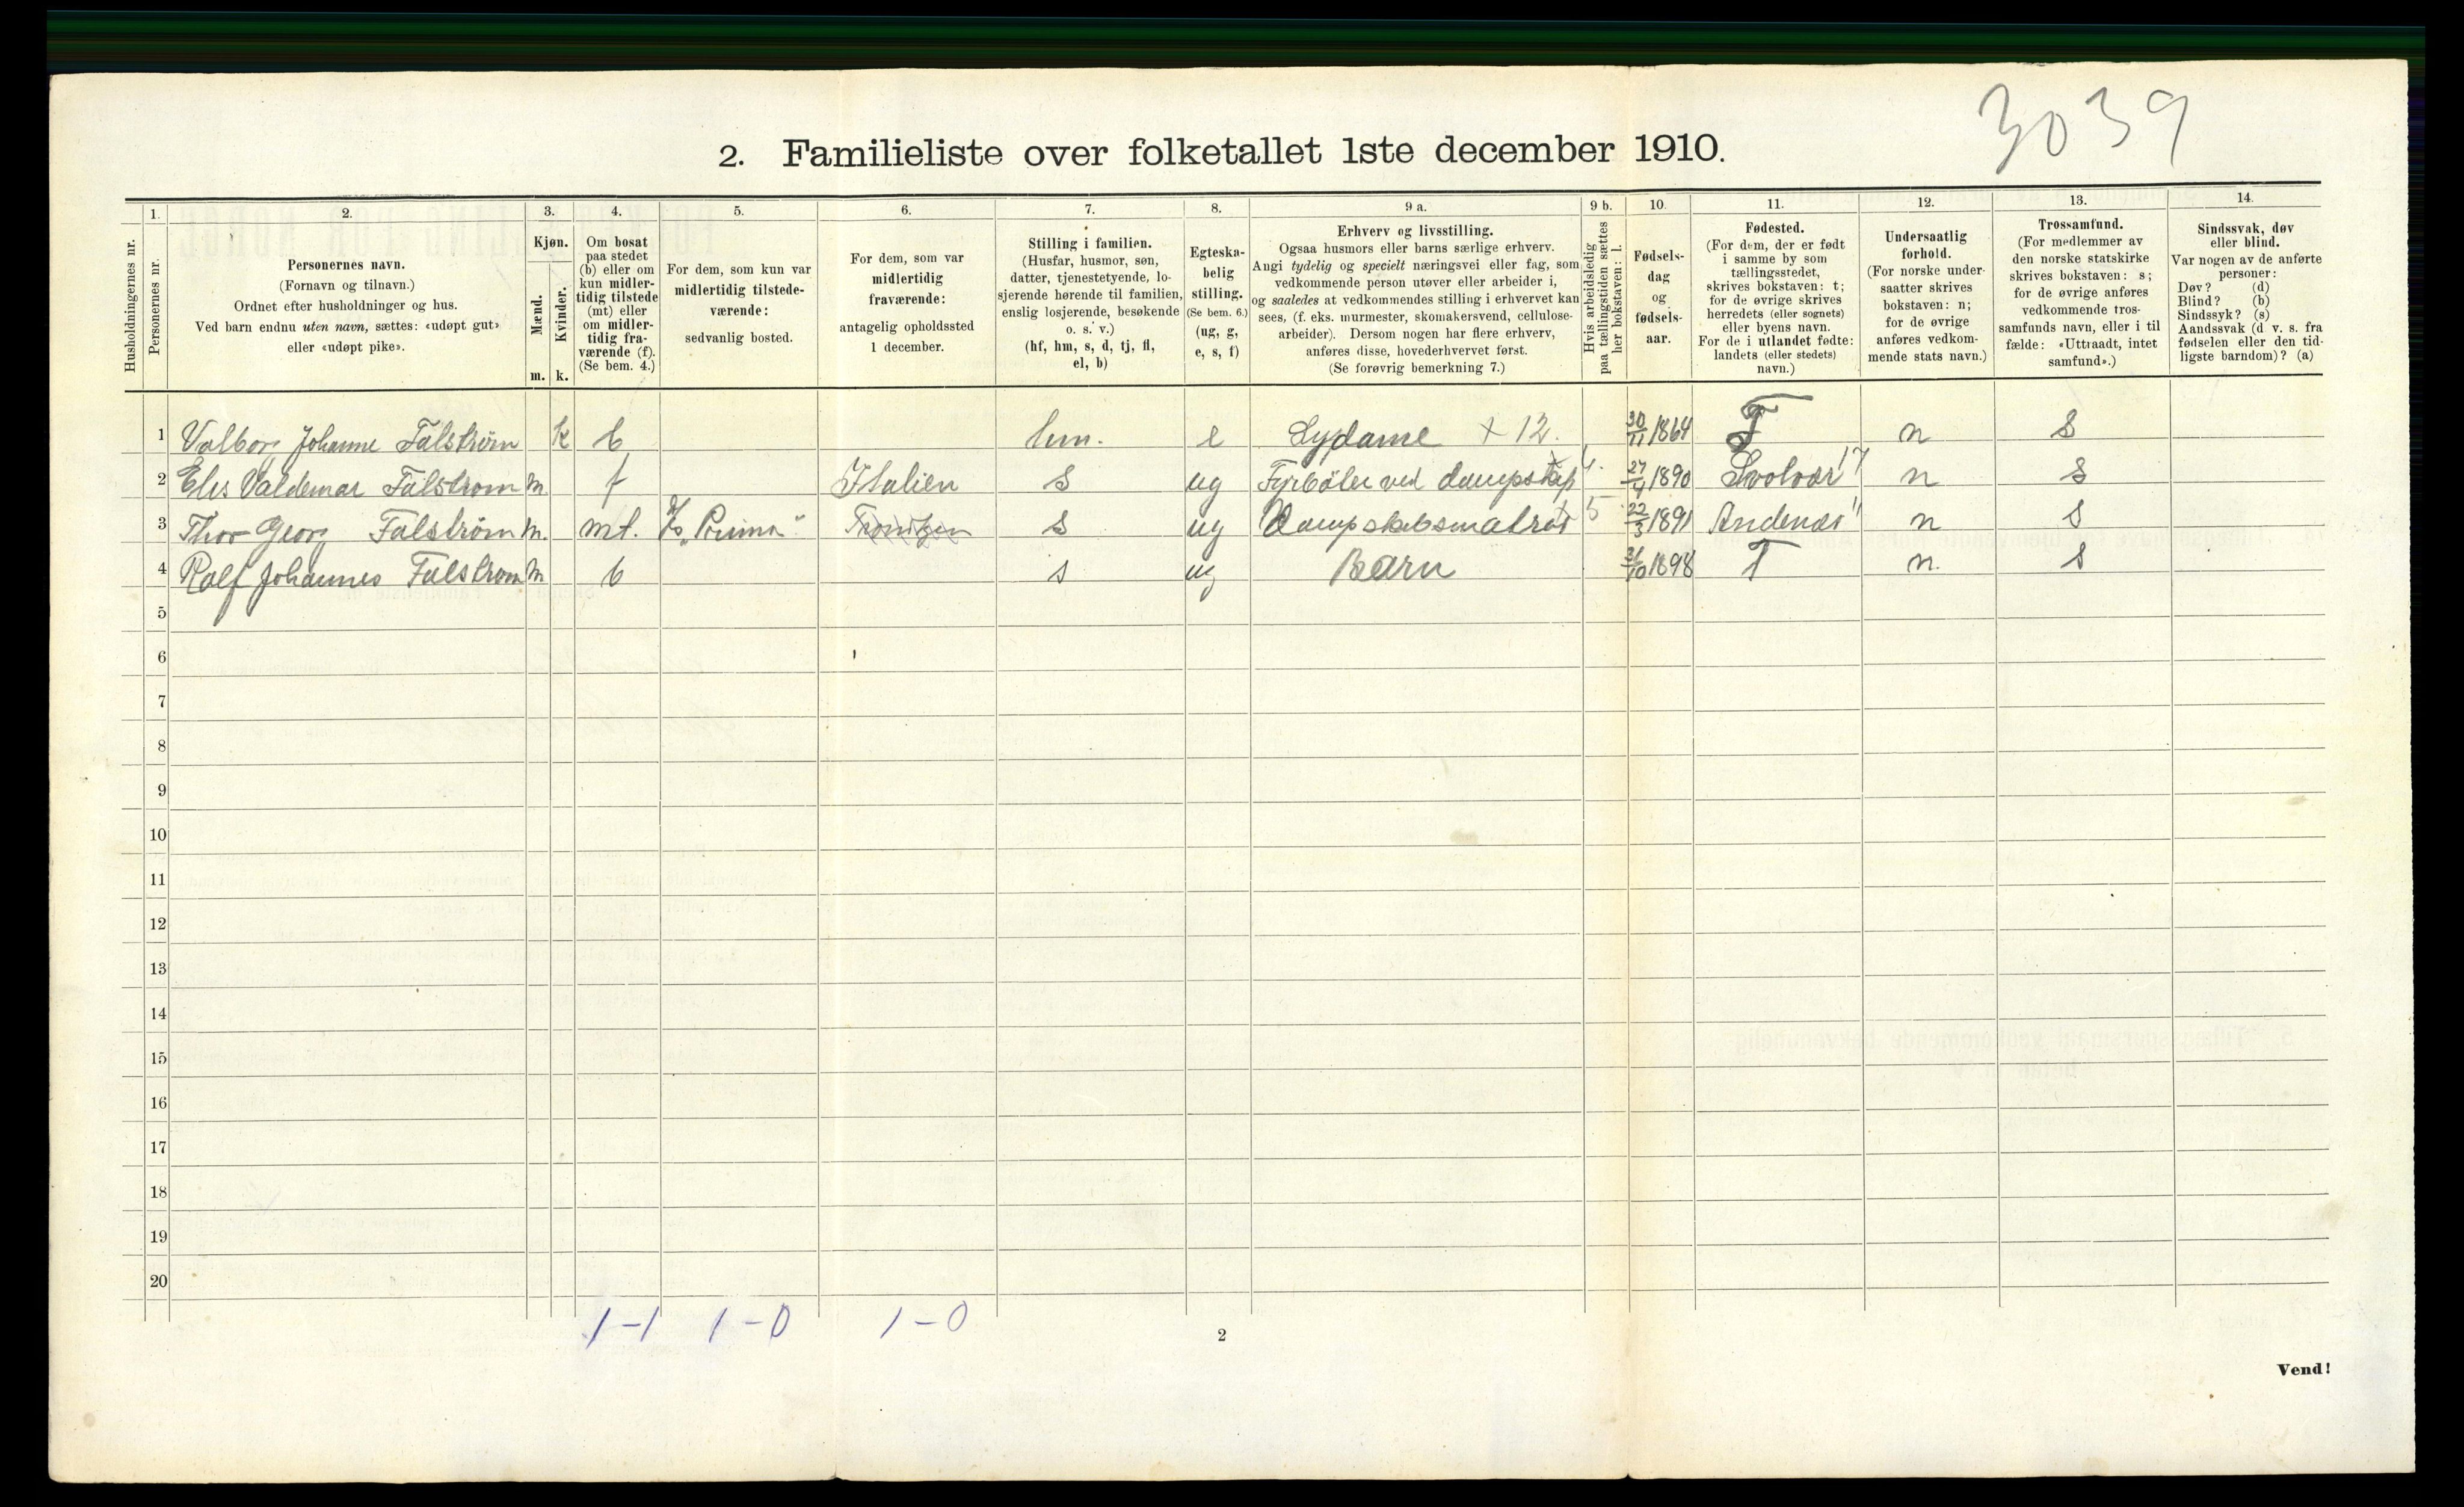 3039
2. Familieliste over folketallet 1ste december 1910.
Husholdningernes nr.
1.
Personernes nr.
2.
Personernes navn.
(Fornavn og tilnavn.)
Ordnet efter husholdninger og hus.
Ved barn endnu uten navn, sættes: «udøpt gut»
eller «udøpt pike».
3.
Kjøn.
Mænd.
Kvinder.
m. k.
4.
Om bosat
paa stedet
(b) eller om
kun midler-
tidig tilstede
(mt) eller
om midler-
tidig fra-
værende (f).
(Se bem. 4.)
5.
For dem, som kun var
midlertidig tilstede-
værende:
sedvanlig bosted.
6.
For dem, som var
midlertidig
fraværende:
antagelig opholdssted
1 december.
7.
Stilling i familien.
(Husfar, husmor, søn,
datter, tjenestetyende, lo-
sjerende hørende til familien,
enslig losjerende, besøkende
o. s. v.)
(hf, hm, s, d, tj, fl,
el, b)
8.
Egteska-
belig
stilling.
(Se bem. 6.)
(ug, g,
e, s, f)
9 a.
Erhverv og livsstilling.
Ogsaa husmors eller barns særlige erhverv.
Angi tydelig og specielt næringsvei eller fag, som
vedkommende person utøver eller arbeider i,
og saaledes at vedkommendes stilling i erhvervet kan
sees, (f. eks. murmester, skomakersvend, cellulose-
arbeider). Dersom nogen har flere erhverv,
anføres disse, hovederhvervet først.
(Se forøvrig bemerkning 7.)
9 b.
Hvis arbeidsledig
paa tællingstiden sættes
her bokstaven: l.
10.
Fødsels-
dag
og
fødsels-
aar.
11.
Fødested.
(For dem, der er født
i samme by som
tællingsstedet,
skrives bokstaven: t;
for de øvrige skrives
herredets (eller sognets)
eller byens navn.
For de i utlandet fødte:
landets (eller stedets)
navn.)
12.
Undersaatlig
forhold.
(For norske under-
saatter skrives
bokstaven: n;
for de øvrige
anføres vedkom-
mende stats navn.)
13.
Trossamfund.
(For medlemmer av
den norske statskirke
skrives bokstaven: s;
for de øvrige anføres
vedkommende tros-
samfunds navn, eller i til
fælde: «Uttraadt, intet
samfund».)
14.
Sindssvak, døv
eller blind.
Var nogen av de anførte
personer:
Døv? (d)
Blind? (b)
Sindssyk? (s)
Aandssvak (d v. s. fra
fødselen eller den tid-
ligste barndom)? (a)
1 Valborg Johanne Falstrøm k b hm. e Sydame + 12. 30/11 1864 T n s
2 Elis Valdemar Falstrøm m. f Italien s ug Fyrbøter ved dampskip 4. 27/4 1890 Svolvær 17 n s
3 Thor Georg Falstrøm m. mt. "Prima" s ug Dampskibsmatros 5 22/3 1891 Andenæs " n s
4 Rolf Johannes Falstrøm m b s ug Barn 31/10 1898 T n. s
5
6
7
8
9
10
11
12
13
14
15
16
17
18
19
20
1-1 1-0 1-0
2
Vend!